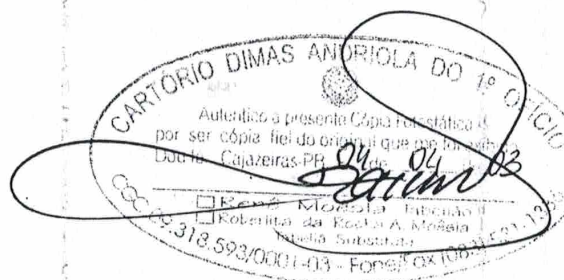 CARTÓRIO DIMAS ANDRIOLA DO 1º OFÍCIO
Autentico a presente Cópia Fotostática
por ser cópia fiel do original que me foi
Dou fé. Cajazeiras-PB 04 de 04 03
Renê Moésia Tabelião
Robertina da Rocha A. Moésia
Tabeliã Substituta
CGC 09.318.593/0001-03 - Fone/Fax (083) 531-